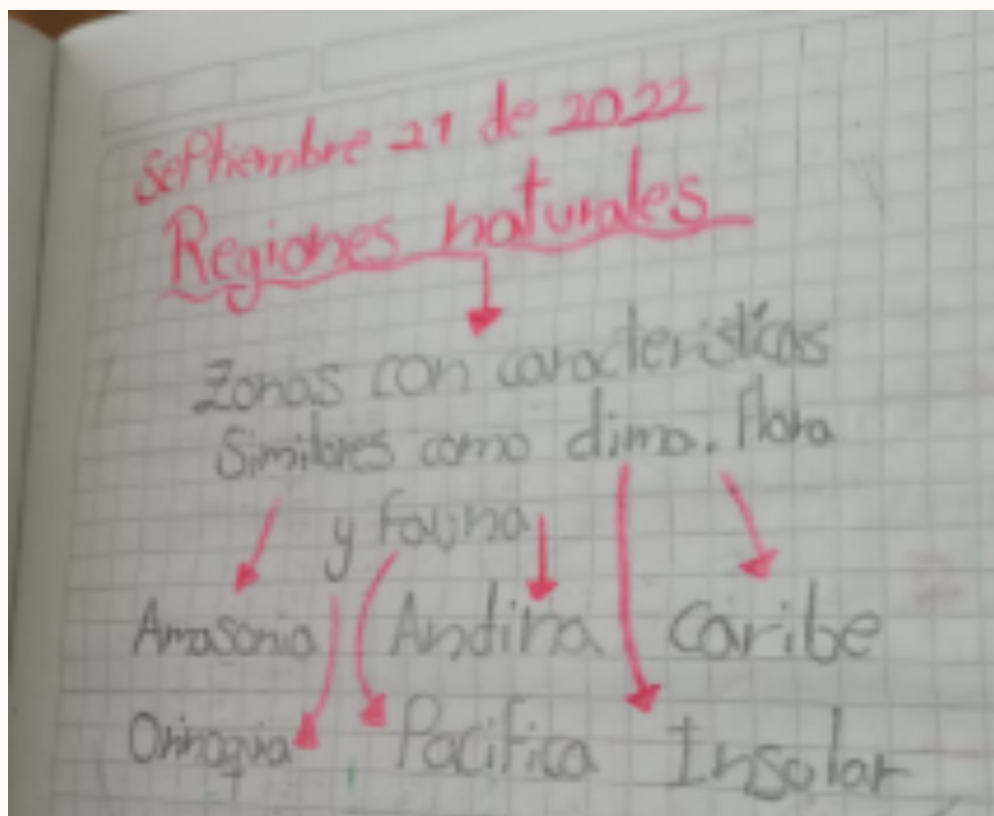 Septiembre 21 de 2022
Regiones naturales
Zonas con características
Similares como clima. flora
y fauna
Amasonia Andina Caribe
Orinoquia Pacifica Insular